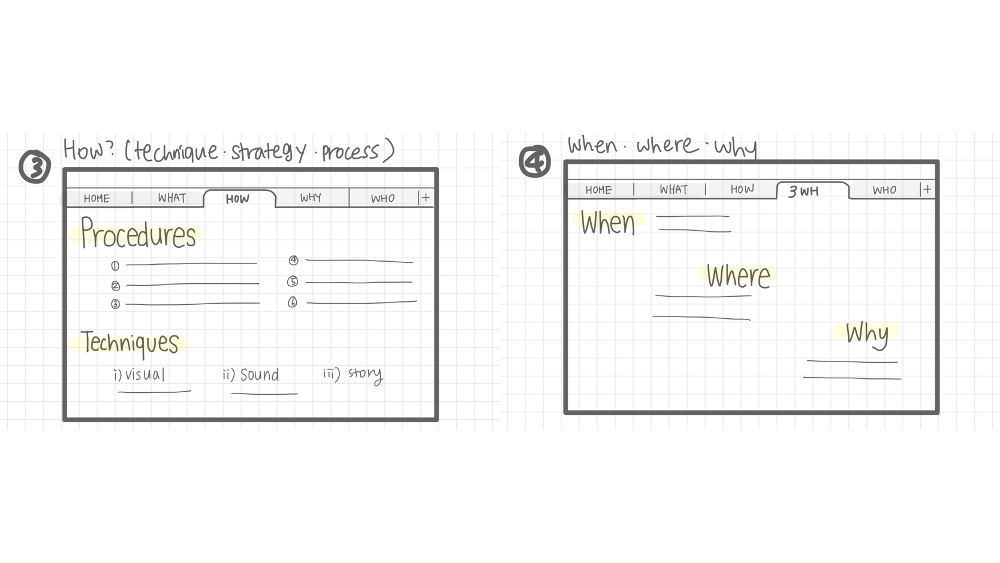 ③ How? (technique · strategy · process)
HOME | WHAT HOW WHY | WHO | +
Procedures
① ④
② ⑤
③ ⑥
Techniques
i) visual ii) Sound iii) story
④ When · where · why
HOME | WHAT | HOW 3WH WHO | +
When
Where
Why